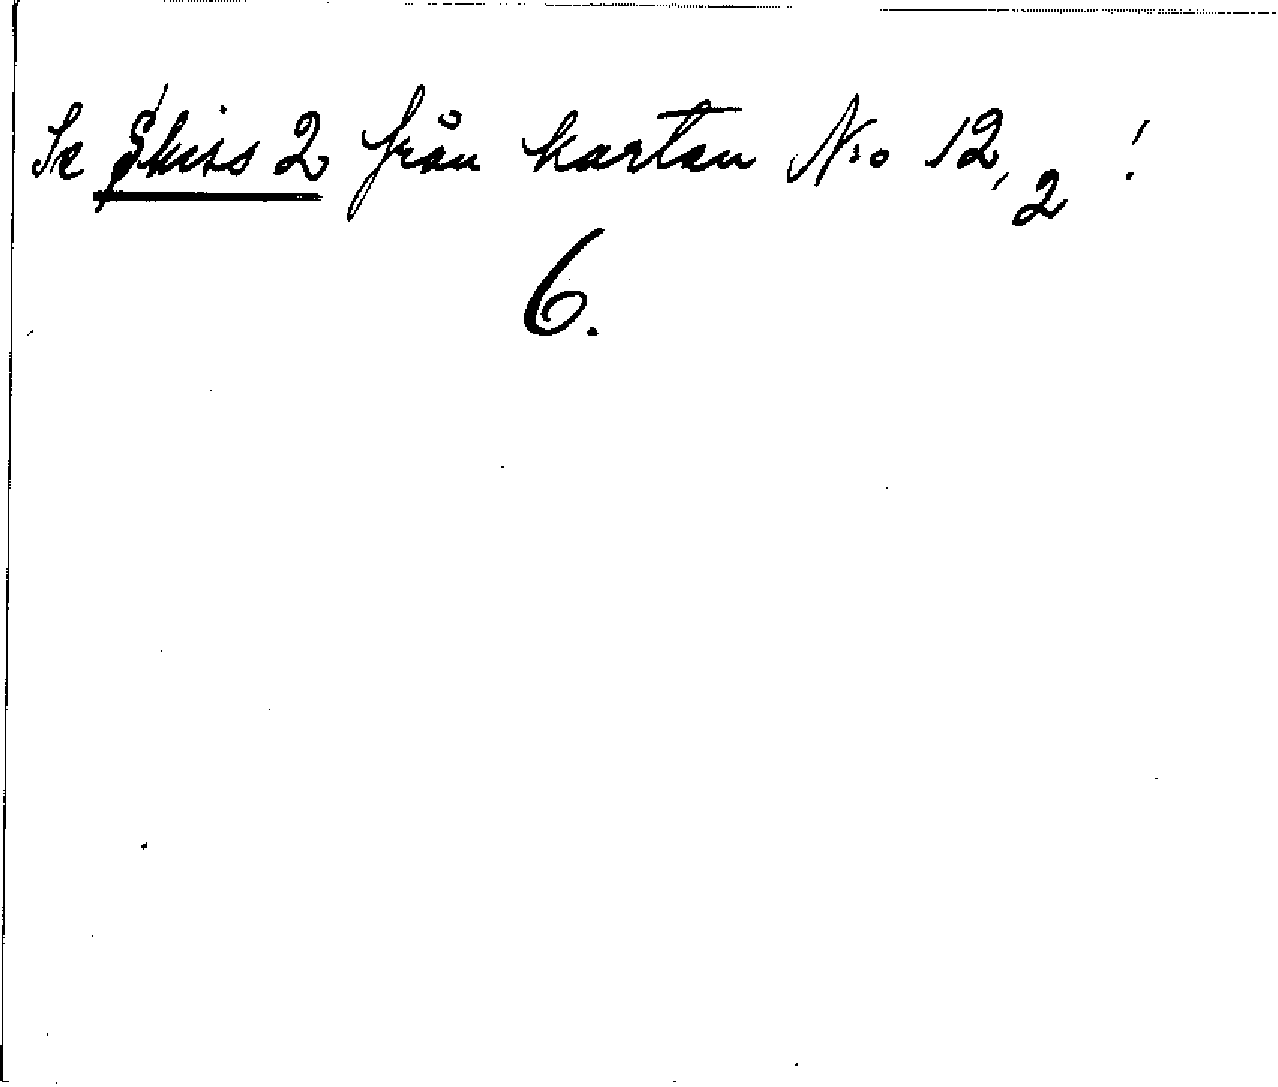 Se Skiss 2 från kartan No 12,2!
6.